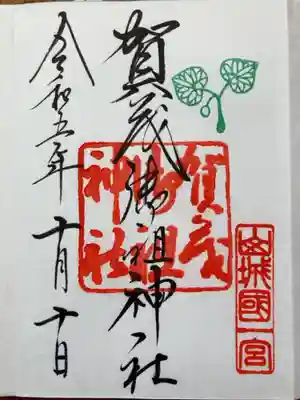 山城國一宮
賀茂御祖神社
賀茂
御祖
神社
令和五年十月十日